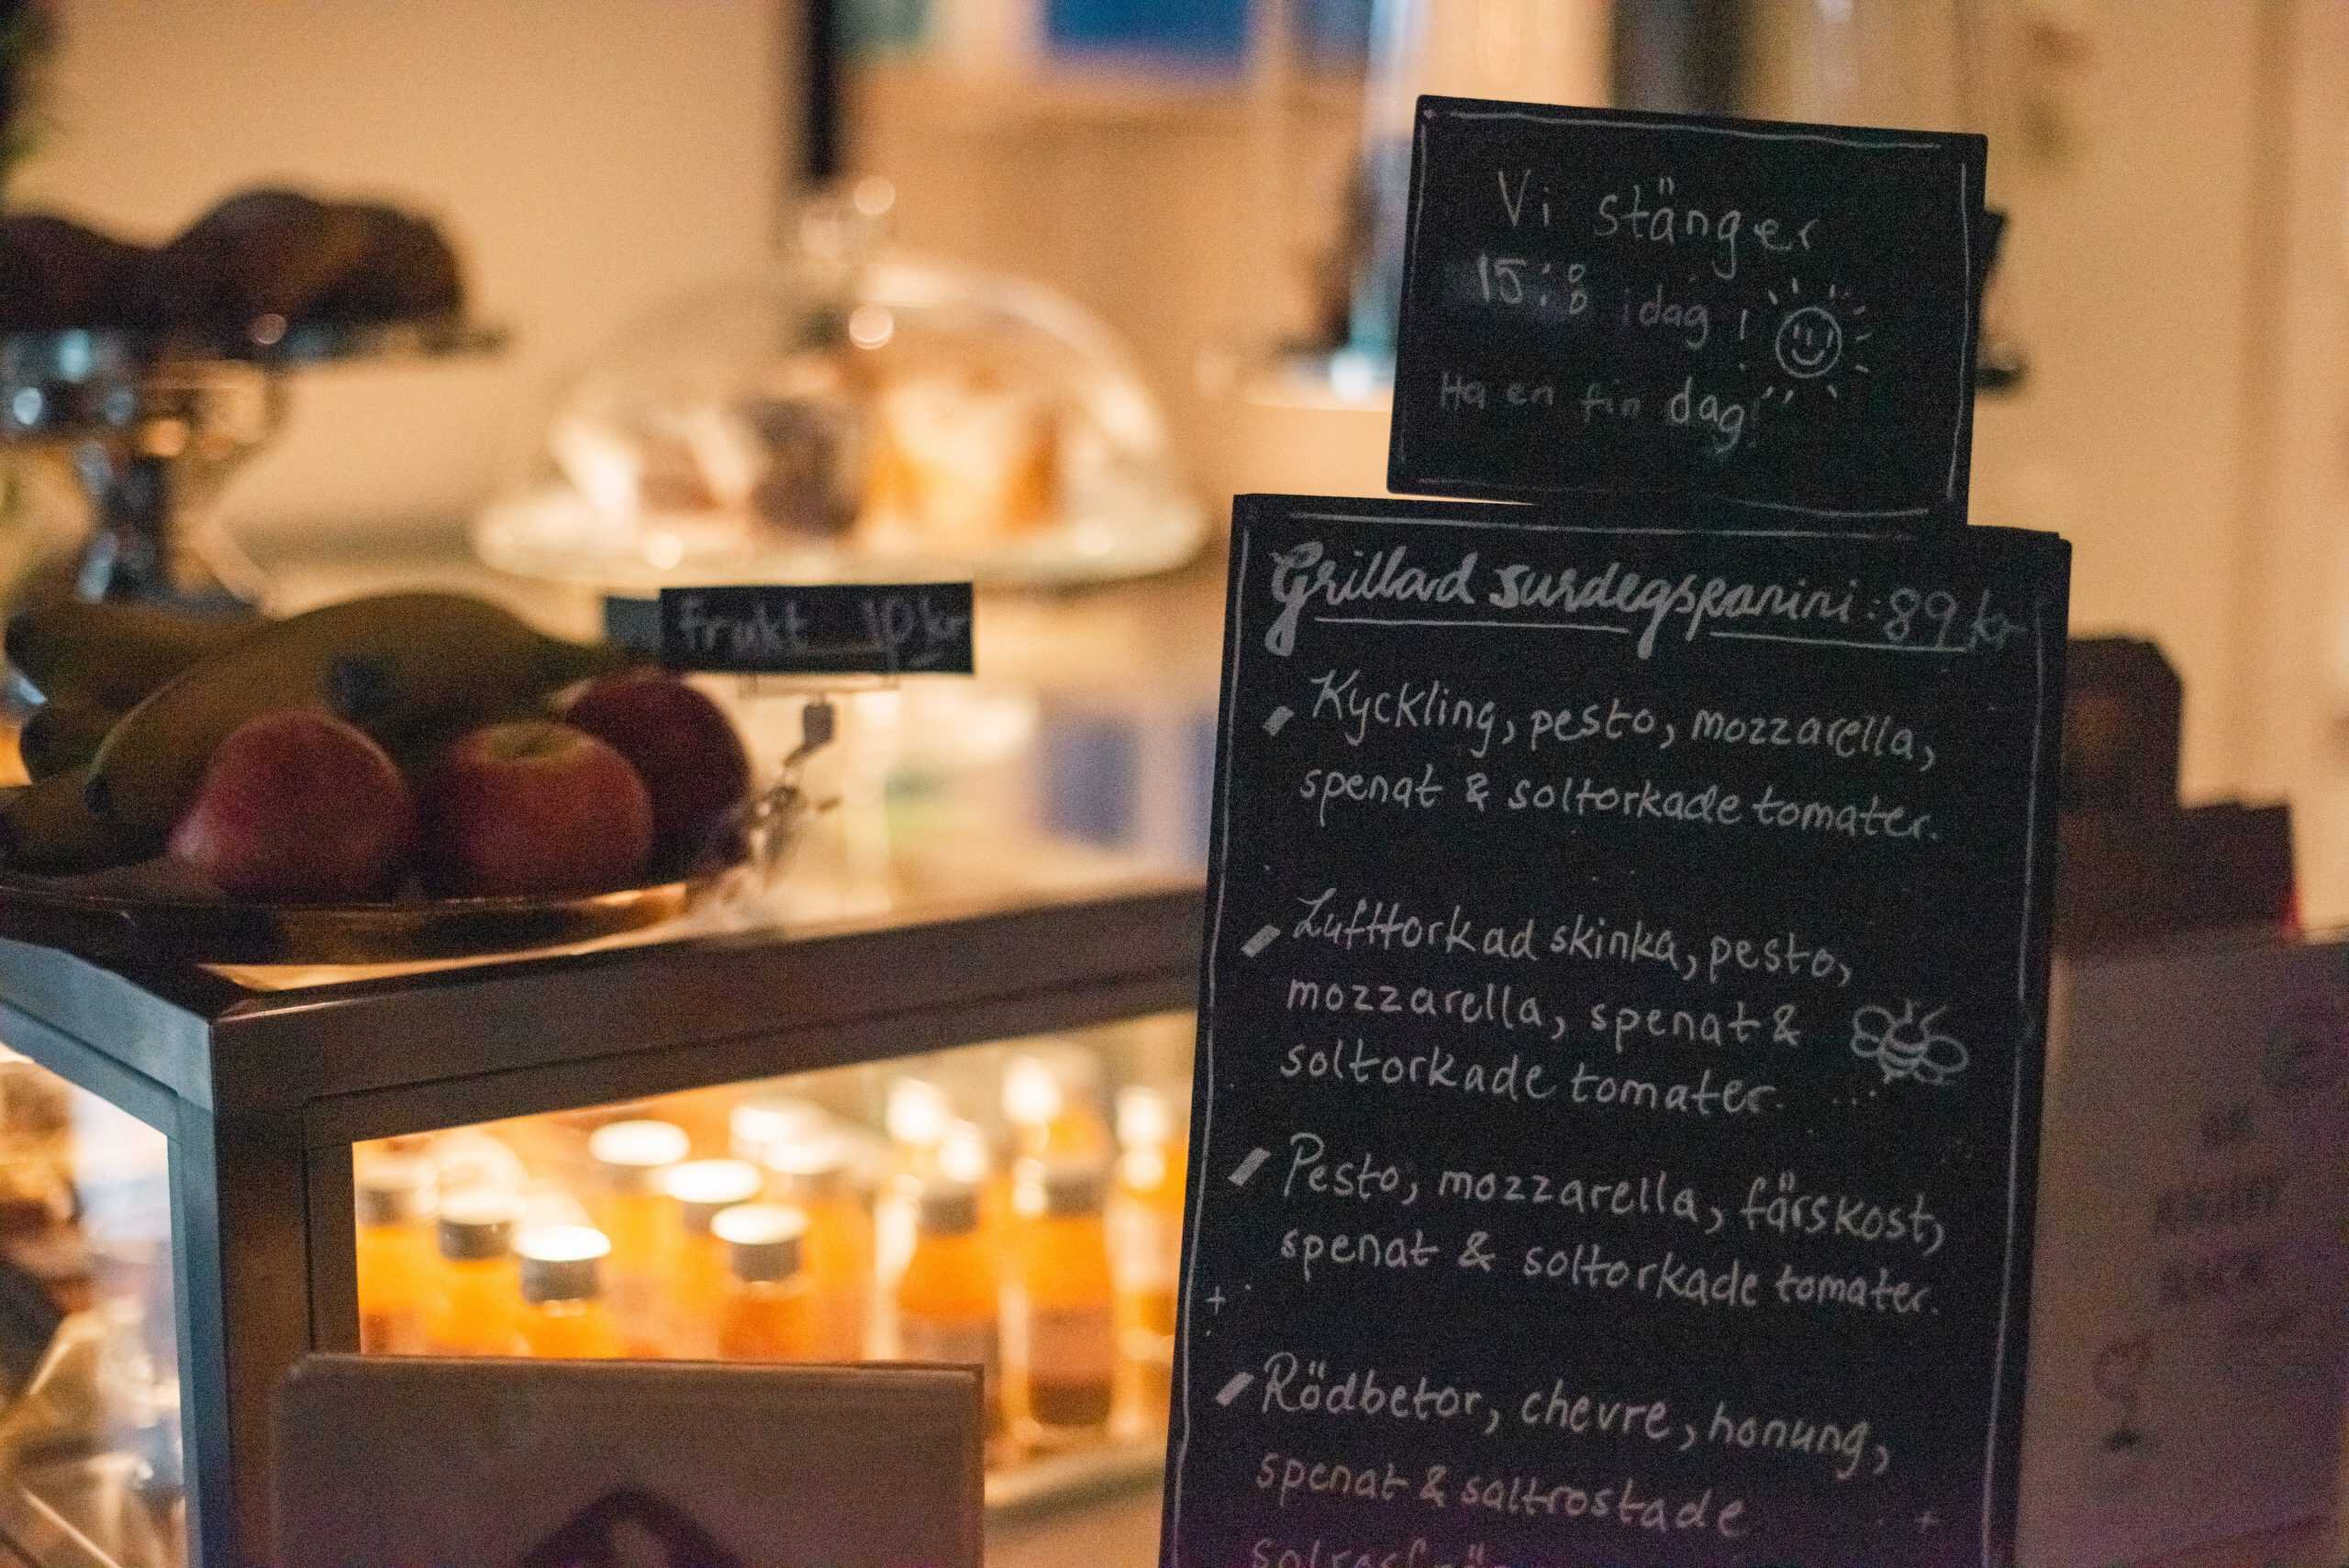 Vi stänger
15:00 idag!
Ha en fin dag!
Frukt 10 kr
Grillad surdegspanini: 89 kr
Kyckling, pesto, mozzarella,
spenat & soltorkade tomater.
Lufttorkad skinka, pesto,
mozzarella, spenat &
soltorkade tomater.
Pesto, mozzarella, färskost,
spenat & soltorkade tomater.
Rödbetor, chevre, honung,
spenat & saltrostade